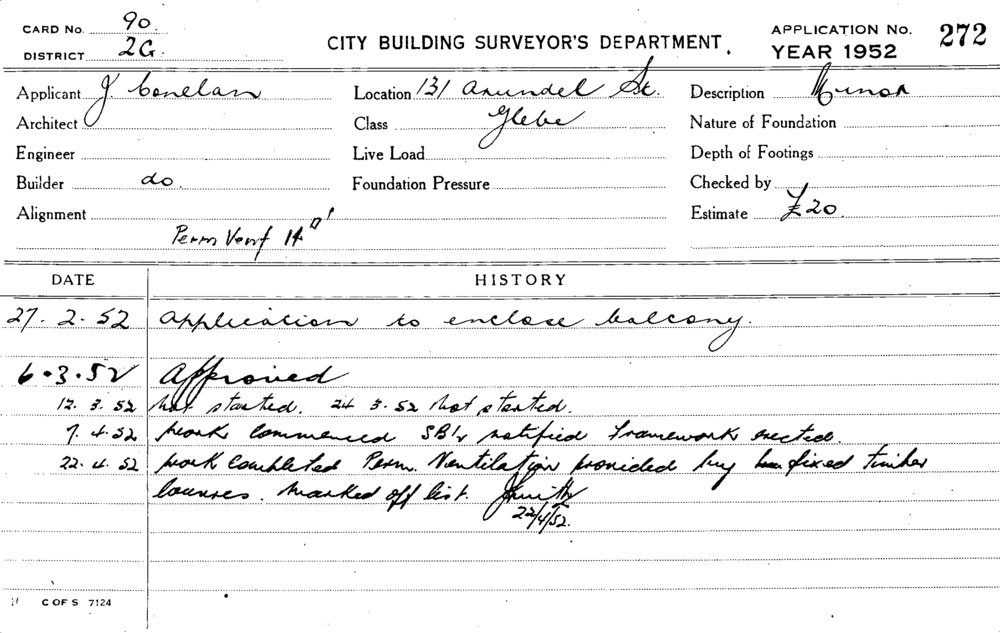 CARD No. 90.
DISTRICT 2G.
CITY BUILDING SURVEYOR'S DEPARTMENT.
APPLICATION No. 272
YEAR 1952
Applicant J Conelan Location 131 Arundel St. Description Minor
Architect Class Glebe Nature of Foundation
Engineer Live Load Depth of Footings
Builder do. Foundation Pressure Checked by
Alignment Estimate £20.
Perm Vent 14 □"
DATE HISTORY
27. 2. 52 Application to enclose balcony.
6. 3. 52 Approved
12. 3. 52 Not started. 24 3. 52 Not started.
7. 4. 52 Work Commenced SBI's notified Framework erected.
22. 4. 52 Work Completed Perm. Ventilation provided by fixed timber
louvres. Marked off list. Smith
22/4/52.
C OF S 7124